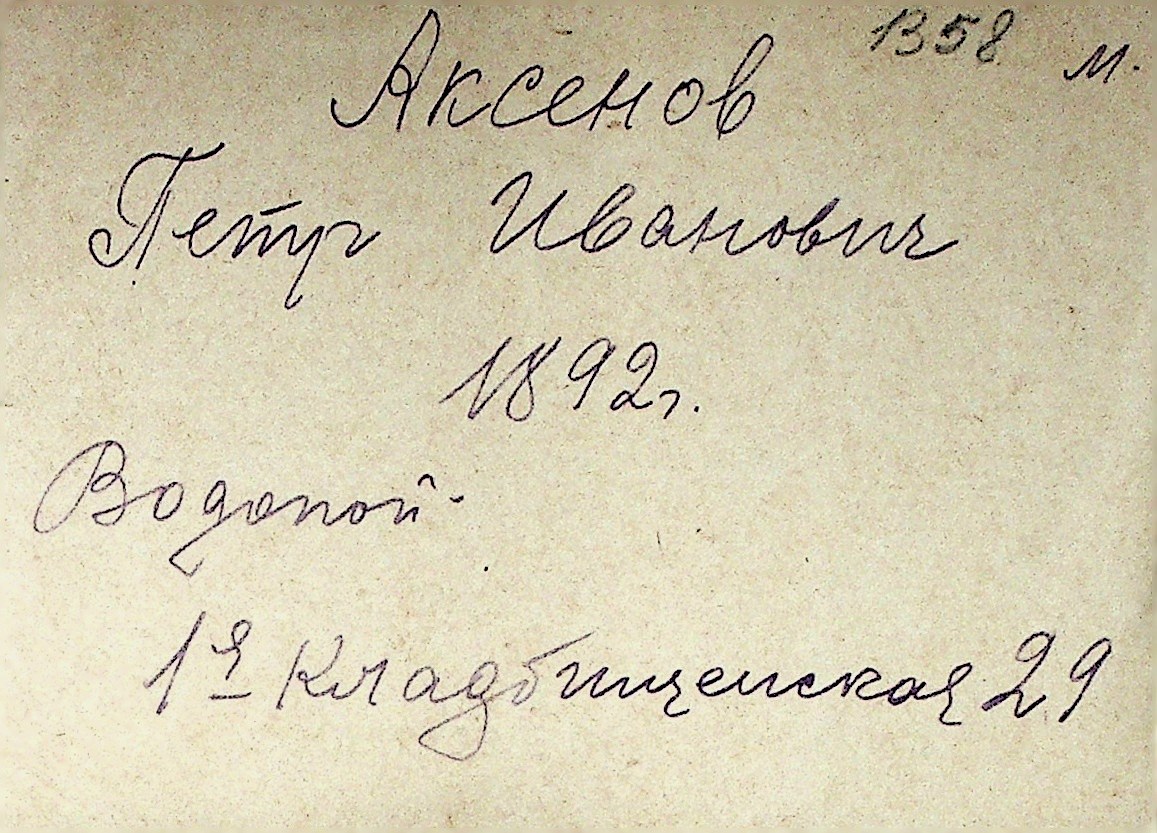 1358 м.
Аксенов
Петр Иванович
1892г.
Водопой
1я Кладбищенская 29